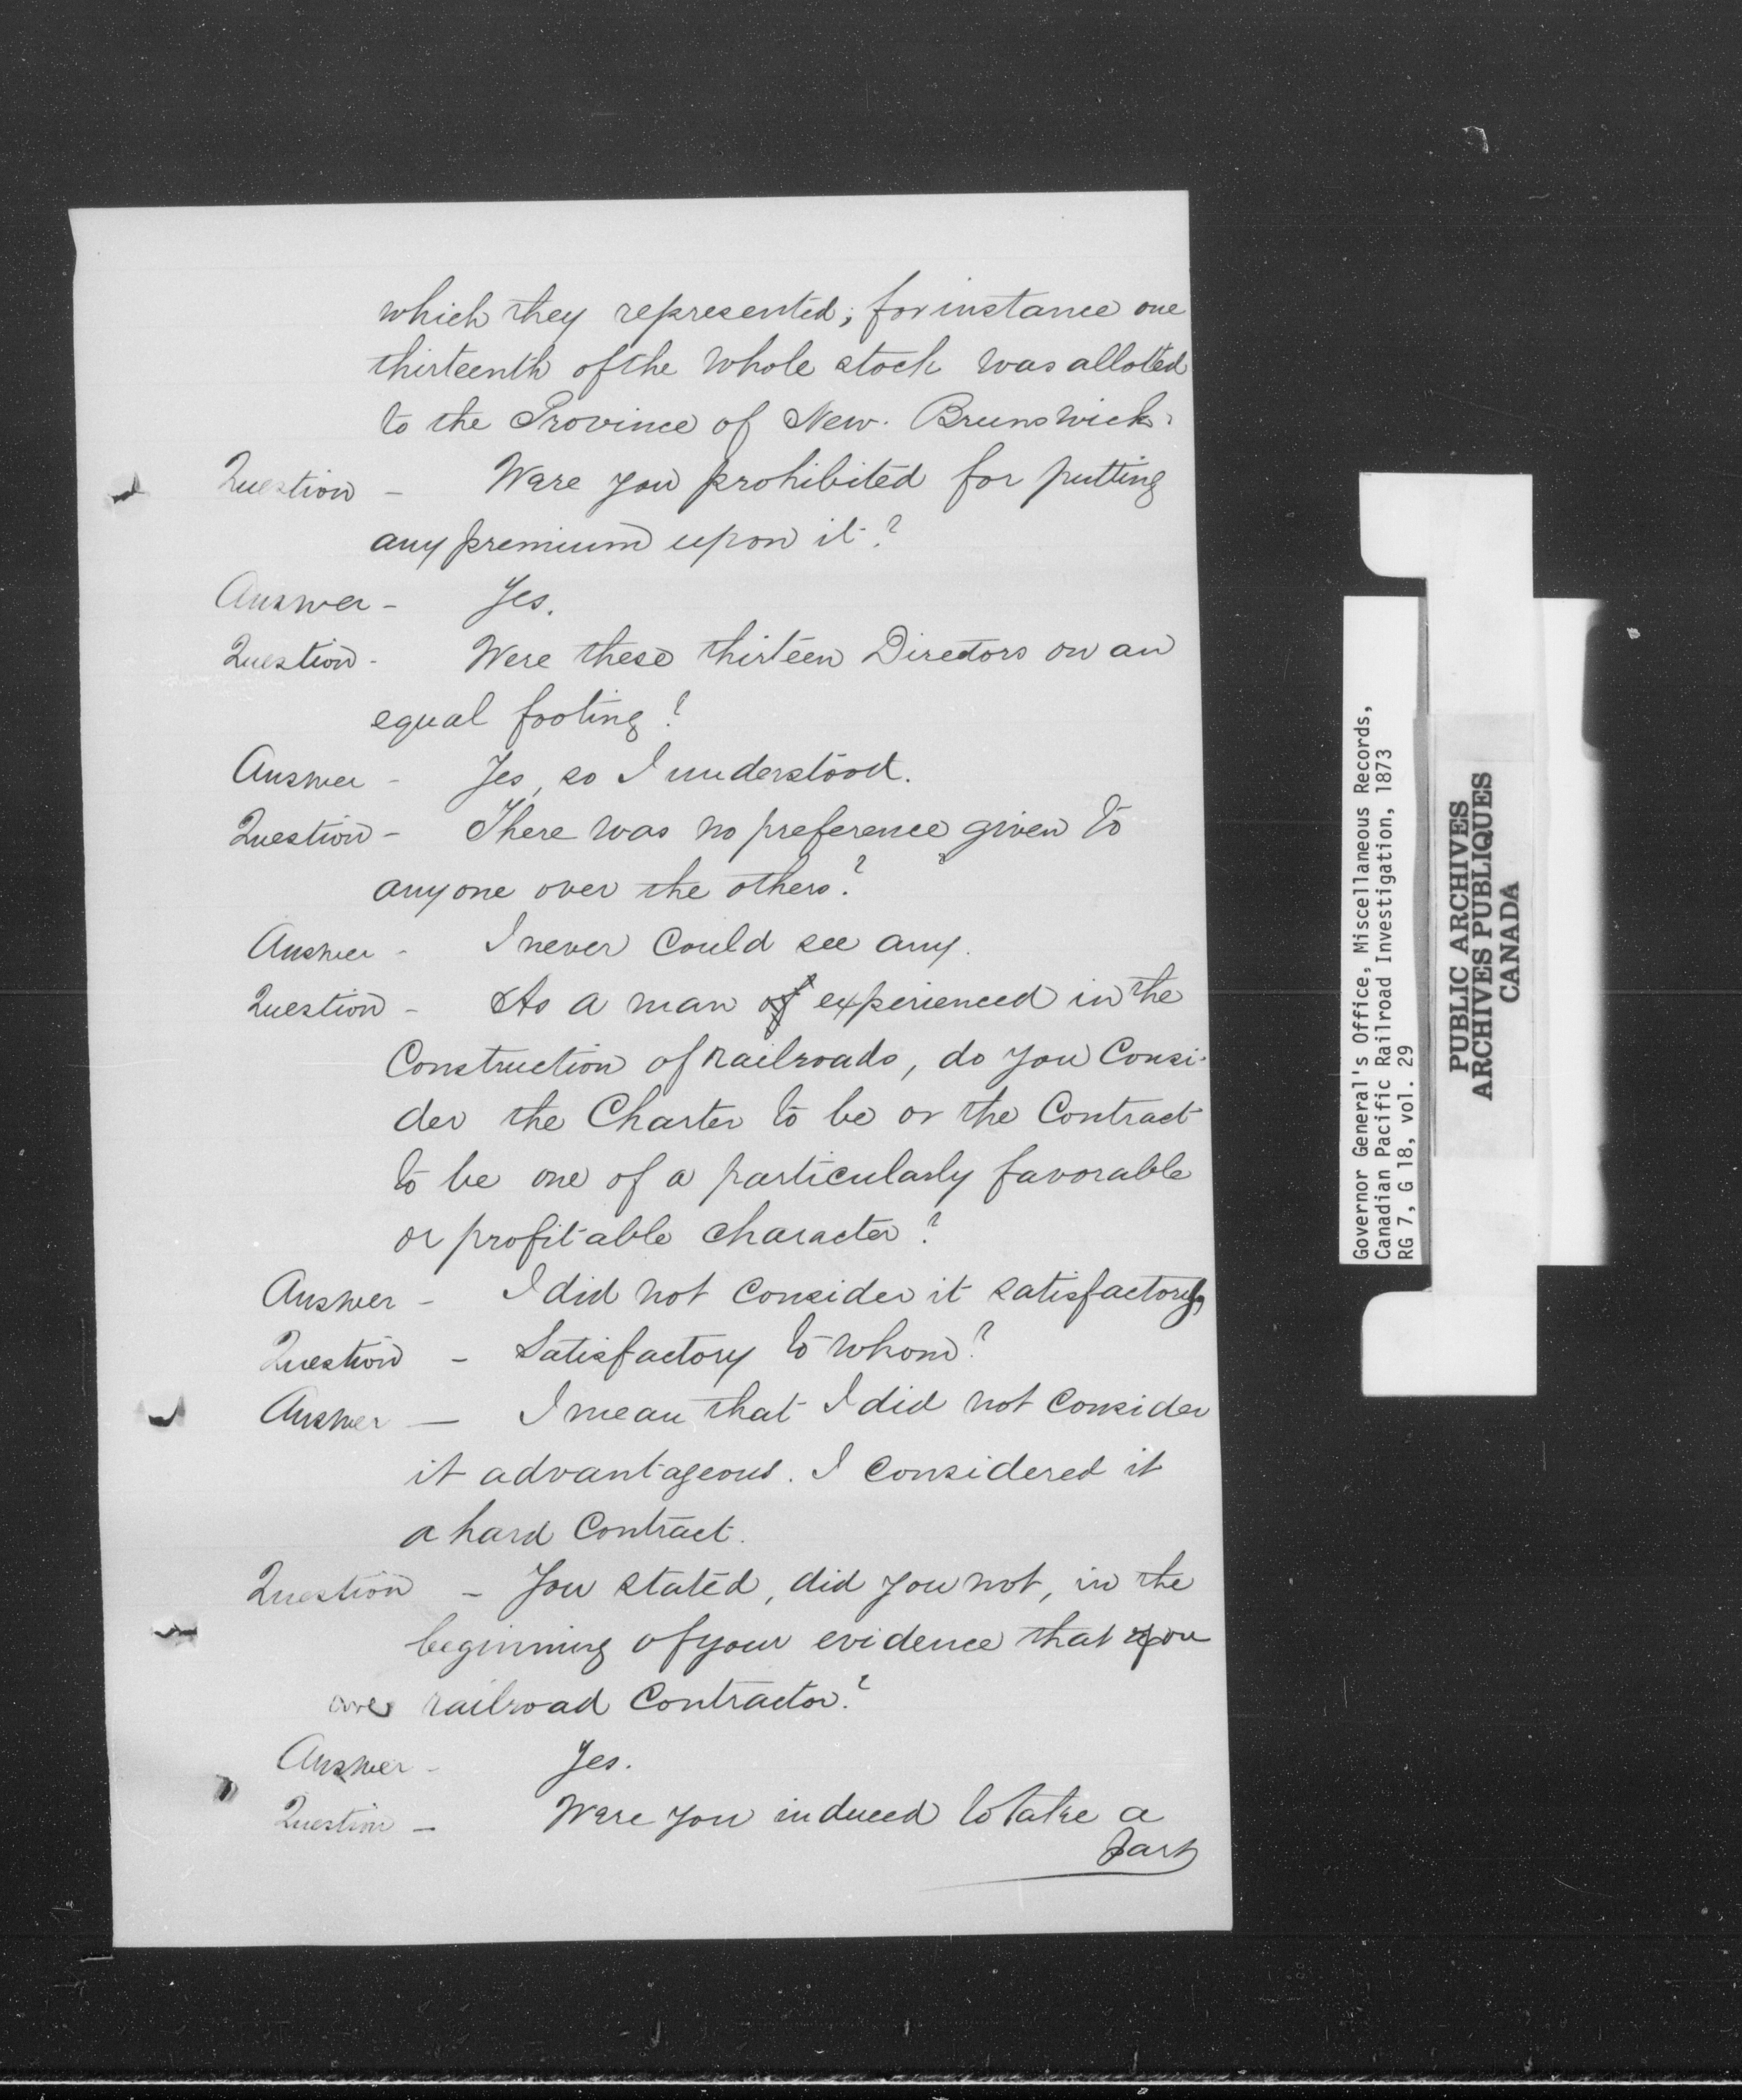 which they represented; for instance one
thirteenth of the whole stock was alloted
to the Province of New. Brunswick.
Question - Were you prohibited for putting
any premium upon it?
Answer - Yes.
Question - Were these thirteen Directors on an
equal footing?
Answer - Yes, so I understood.
Question - There was no preference given to
anyone over the others?
Answer - I never could see any.
Question - As a man of experienced in the
Construction of railroads, do you Consi-
der the Charter to be or the Contract
to be one of a particularly favorable
or profitable character?
Answer - I did not Consider it satisfactory,
Question - Satisfactory to whom?
Answer - I mean that I did not Consider
it advantageous. I Considered it
a hard Contract.
Question - You stated, did you not, in the
beginning of your evidence that you
railroad Contractor?
Answer - Yes.
Question - Were you induced to take a
part
Governor General's Office, Miscellaneous Records,
Canadian Pacific Railroad Investigation, 1873
RG 7, G 18, vol. 29
PUBLIC ARCHIVES
ARCHIVES PUBLIQUES
CANADA